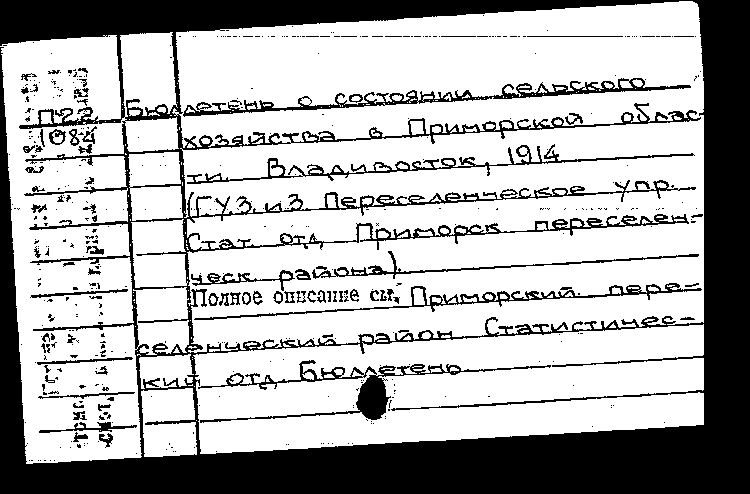 П22 Бюллетень о состоянии сельского
1084 хозяйства в Приморской облас-
ти. Владивосток, 1914
(ГУЗ. и З. Переселенческое упр.
Стат. отд. Приморск переселен-
ческ района).
Полное описание см. Приморский пере-
селенческий район Статистичес-
кий отд. Бюллетень